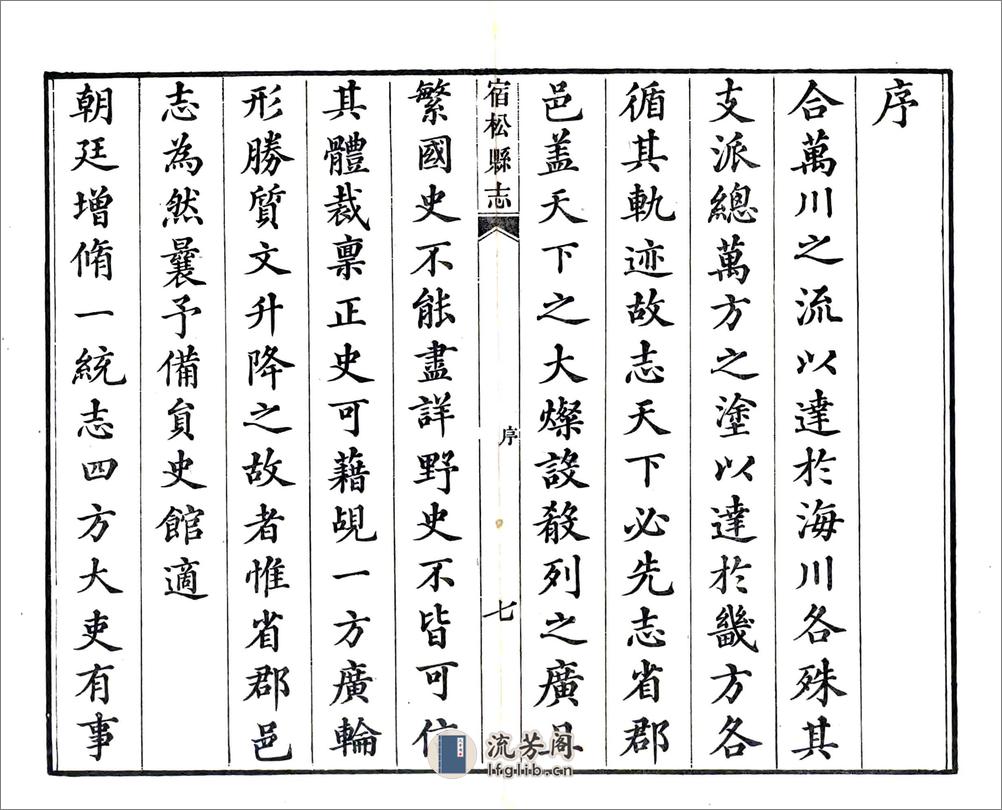 序
合萬川之流以達於海川各殊其
支派總萬方之塗以達於畿方各
循其軌迹故志天下必先志省郡
邑盖天下之大燦設殽列之廣
宿松縣志
序
七
繁國史不能盡詳野史不皆可信
其體裁稟正史可藉覘一方廣輪
形勝質文升降之故者惟省郡邑
志為然曩予備員史館適
朝廷增脩一統志四方大吏有事
流芳阁
lfglib.cn